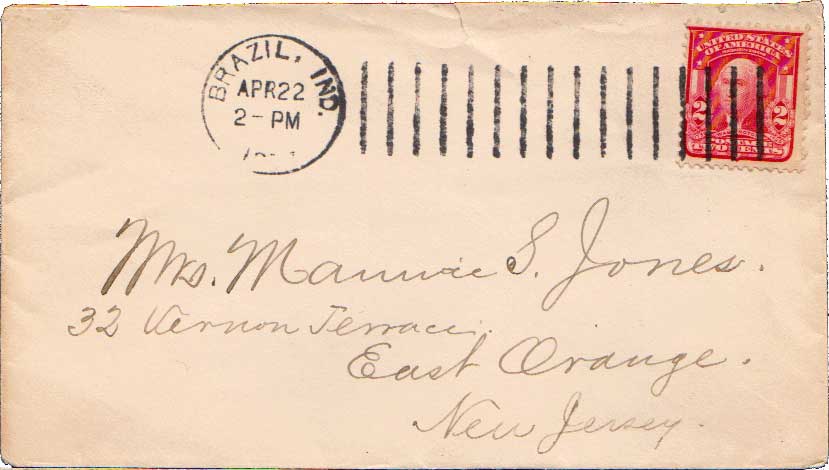 BRAZIL, IND.
APR 22
2 - PM
UNITED STATES
OF AMERICA
2 2
POSTAGE
TWO CENTS
Mrs. Maurice S. Jones.
32 Vernon Terrace.
East Orange.
New Jersey.